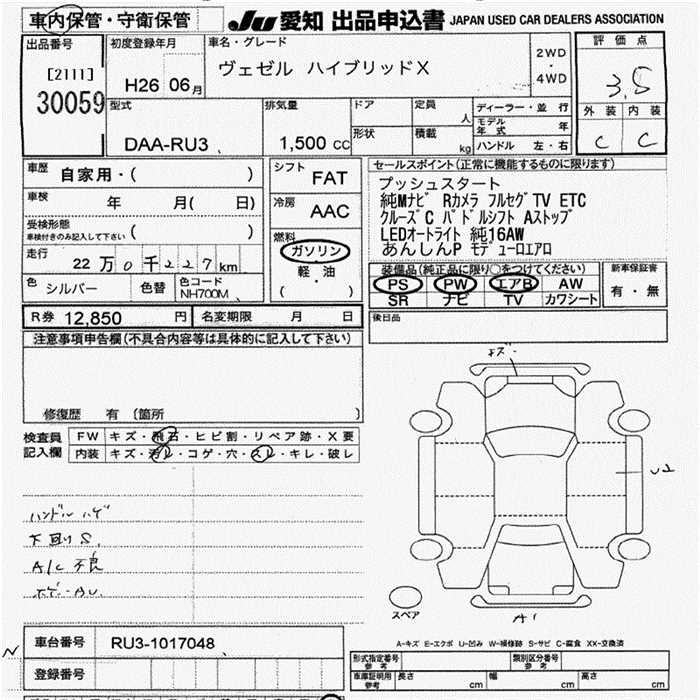 車内保管・守衛保管
JU 愛知 出品申込書 JAPAN USED CAR DEALERS ASSOCIATION
出品番号
[2111]
30059
初度登録年月
H26 06月
車名・グレード
ヴェゼル ハイブリッドX
2WD
・
4WD
評価点
3.5
外装 内装
C C
型式
DAA-RU3
排気量
1,500 cc
ドア
形状
定員
人
積載
kg
ディーラー・並行
モデル年式 年
ハンドル 左・右
車歴
自家用・( )
車検
年 月( 日)
受検形態
車検付きのみ記入して下さい ( )
走行
22万0千227km
色 シルバー 色替 色コード
NH700M
シフト
FAT
冷房
AAC
燃料
ガソリン
軽・油
・
( )
セールスポイント(正常に機能するものに限ります)
プッシュスタート
純Mナビ Rカメラ フルセグTV ETC
クルーズC パドルシフト Aストップ
LEDオートライト 純16AW
あんしんP モデューロエアロ
装備品(純正品に限り○をつけてください)
PS PW エアB AW
SR ナビ TV カワシート
新車保証書
有・無
R券 12,850 円 名変期限 月 日
後日品
注意事項申告欄(不具合内容等は具体的に記入して下さい)
修復歴 有 〔箇所 〕
検査員
記入欄
FW キズ・飛石・ヒビ割・リペア跡・X要
内装 キズ・汚レ・コゲ・穴・スレ・キレ・破レ
ハンドル ハゲ
下回りS.
A/C 不良
A1
スペア
A-キズ E-エクボ U-凹み W-補修跡 S-サビ C-腐食 XX-交換済
車台番号 RU3-1017048
登録番号
N
形式指定番号
参考
類別区分番号
参考
車庫証明用
参考
長さ cm 幅 cm 高さ cm